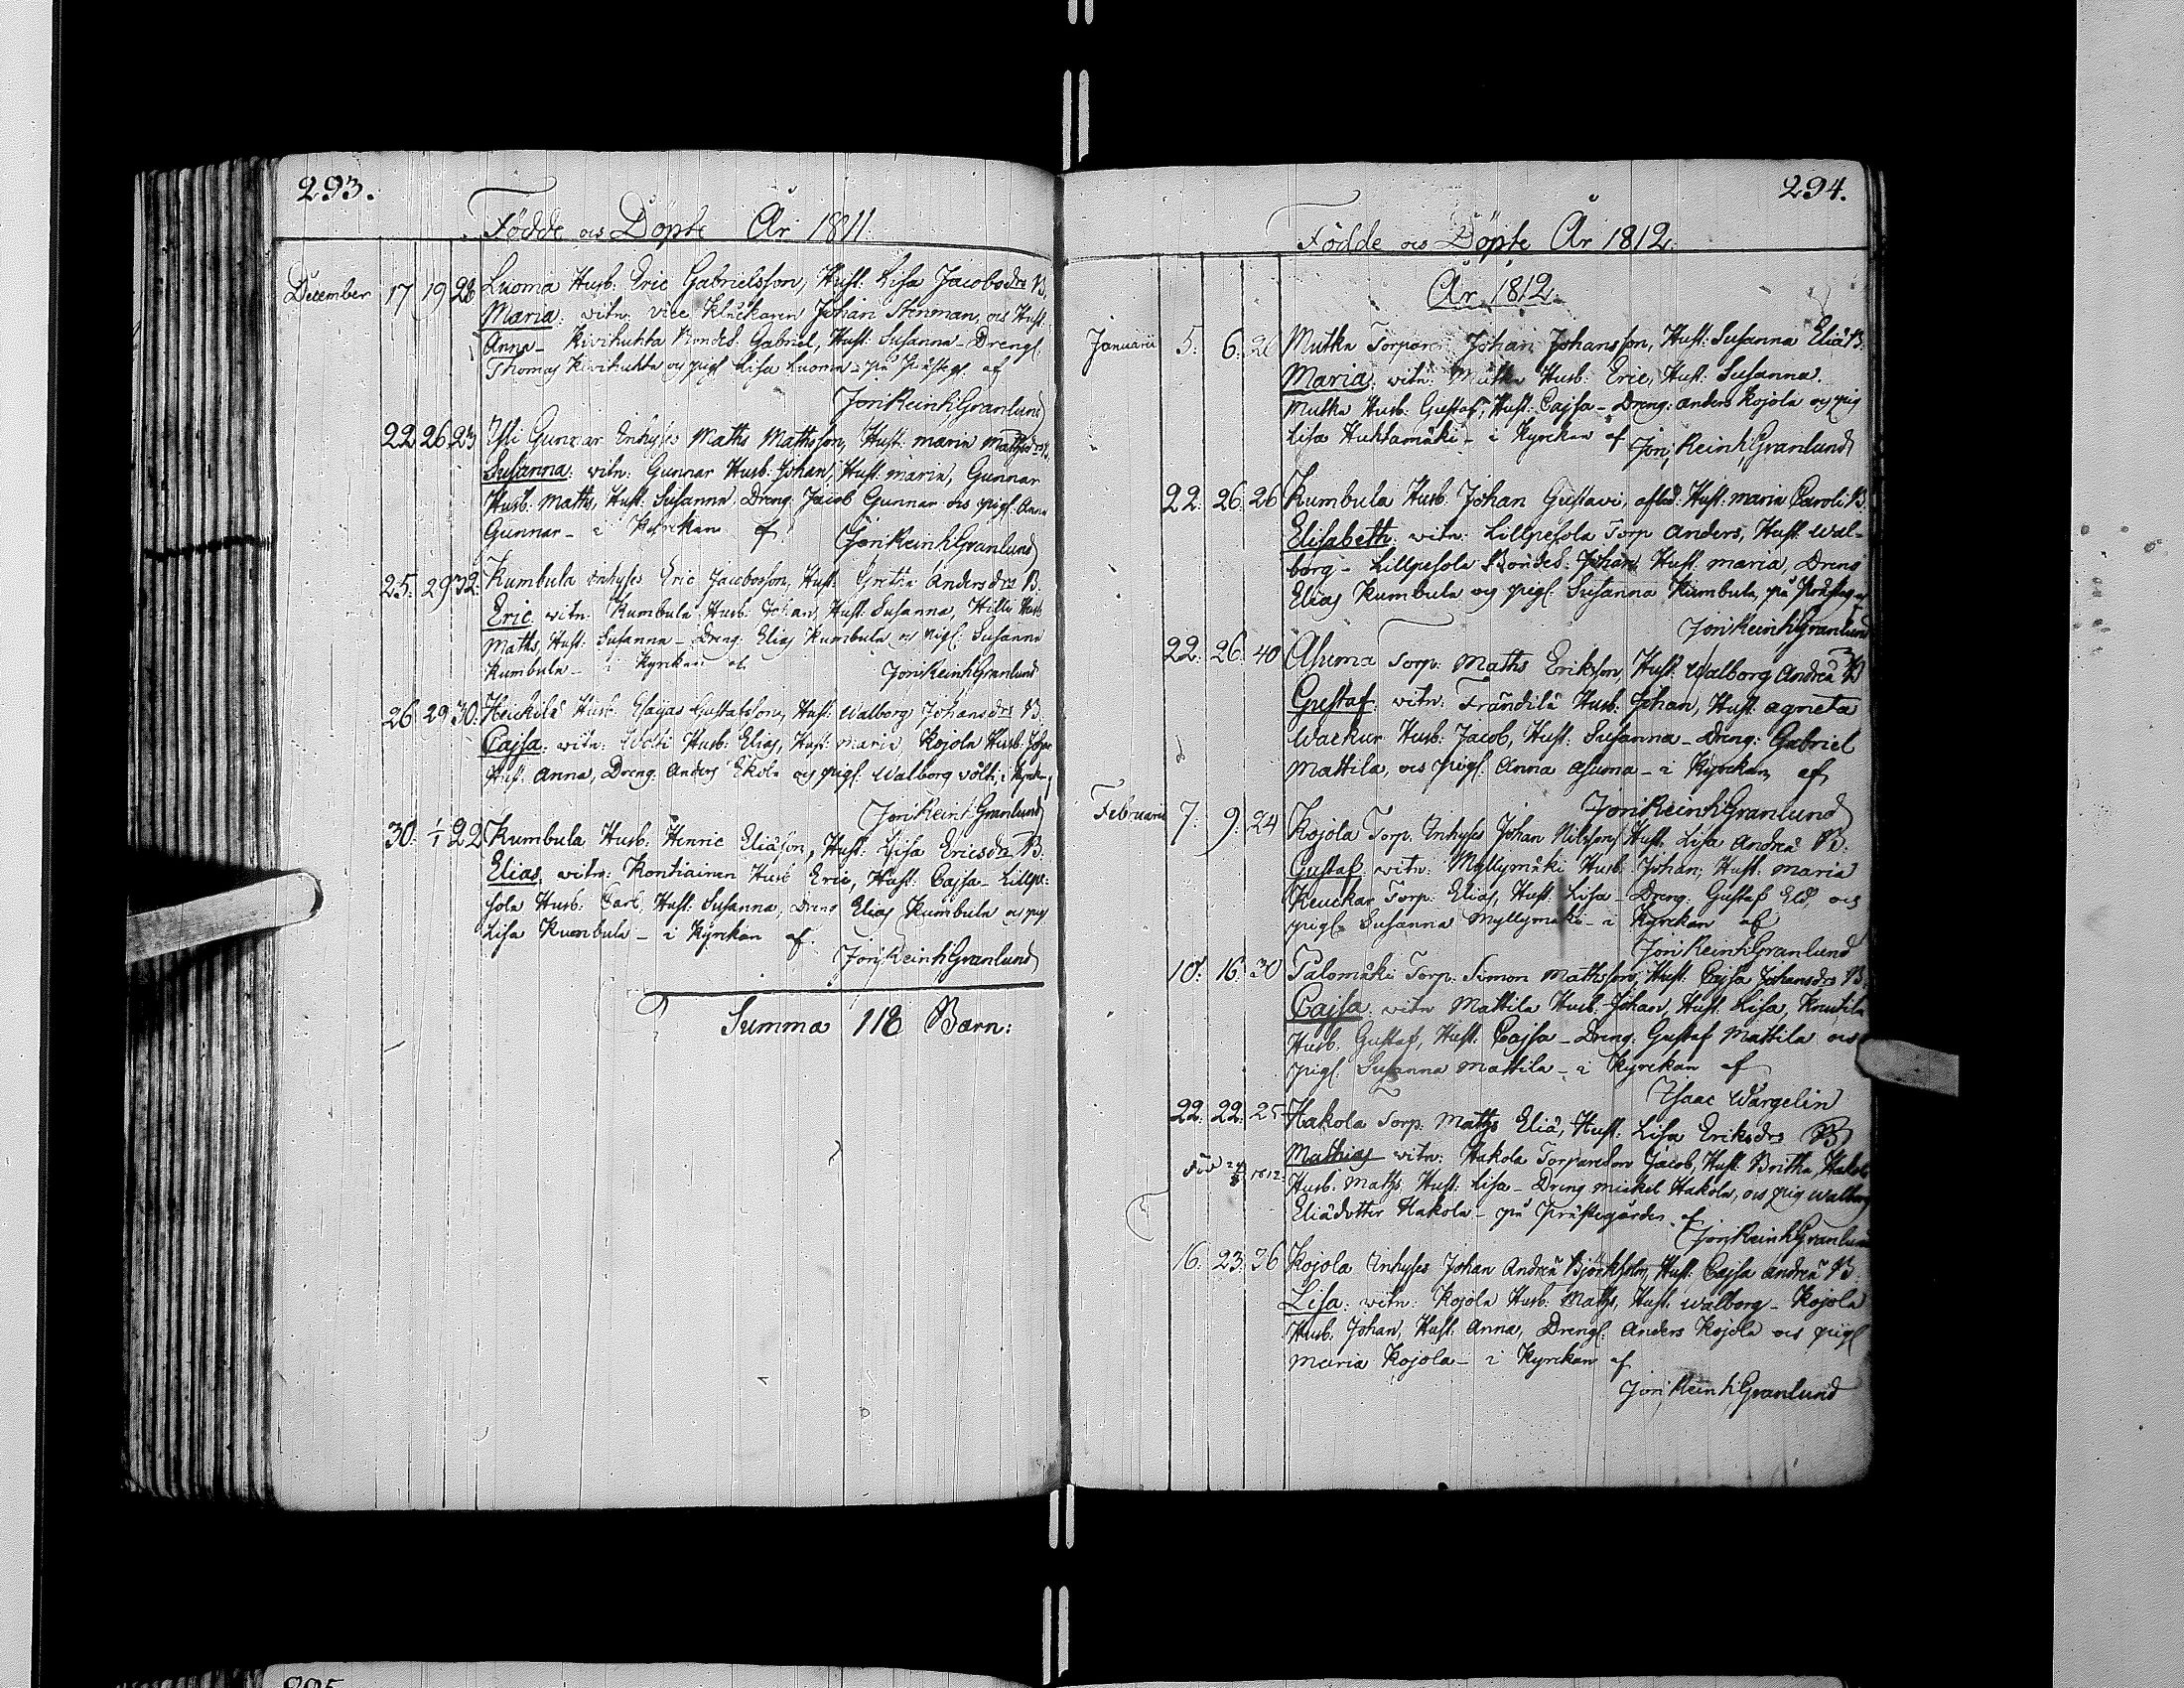 293.
Födde och Döpte År 1811.
December 17 19 28 Luoma Husb: Eric Gabrielsson, Hust: Lisa Jacobsdr B.
Maria: witn: vice Klåckaren Johan Stenman, och Hust:
Anna - Kivihuhta Bondes: Gabriel, Hust: Susanna - Drengl:
Thomas Kivihuhta och pigl Lisa Luoma - på Prästeg: af
Joh Reinh Granlund
22 26 23 Yli Gunnar Inhyses Maths Mathsson, Hust: maria Mathsdr B.
Susanna: witn: Gunnar Husb: Johan, Hust: maria, Gunnar
Husb: Maths, Hust: Susanna, Dreng: Jacob Gunnar och pigl: Anna
Gunnar - i Kyrckan af Joh Reinh Granlund
25. 29 32. Kumbula Inhyses Eric Jacobsson, Hust: Gretha Andersdr B.
Eric: witn: Kumbula Husb: Johan, Hust: Susanna, Husb:
Maths, Hust: Susanna - Dreng: Elias Kumbula och pigl: Susanna
Kumbula - i Kyrckan af Joh Reinh Granlund
26 29 30. Heickilä Husb: Esaias Gustafsson, Hust: Walborg Johansdr B.
Cajsa: witn: Wolti Husb: Elias, Hust: maria, Kojola Husb: Johan
Hust: Anna, Dreng: Anders Ekola och pigl: Walborg völti, i Kyrckan
Joh Reinh Granlund
30. 1/1 22 Kumbula Husb: Henric Eliäson, Hust: Lisa Ericsdr B.
Elias: witn: Kontiainen Husb Eric, Hust: Cajsa - Lillpe=
sola Husb: Carl, Hust: Susanna, Dreng Elias Kumbula och pigl
Lisa Kumbula - i Kyrckan af.
Joh Reinh Granlund
Summa 118 Barn:
294.
Födde och Döpte År 1812.
År 1812.
Januarii 5. 6. 26 Mutka Torparen Johan Johansson, Hust: Susanna Eliä B.
Maria: witn: Mutka Husb: Eric, Hust: Susanna.
Mutka Husb: Gustaf, Hust: Cajsa - Dreng: anders Kojola och pig
Lisa Huhtamäki - i Kyrckan af Joh Reinh Granlund
22. 26. 26 Kumbula Husb: Johan Gustavi, afled: Hust: maria Caroli B.
Elisabeth: witn: Lillpesola Torp Anders, Hust: Wal-
borg - Lillpesola Bondes: Johan Hust: maria, Dreng
Elias Kumbula och pigl: Susanna Kumbula, på Prästeg af
Joh Reinh Granlund
22. 26. 40 Asuma Torp: Maths Erikson, Hust: Walborg Andreä B
Gustaf: witn: Frändilä Husb: Johan, Hust: agneta
Wackur Husb: Jacob, Hust: Susanna - Dreng: Gabriel
Mattila, och pigl: Anna asuma - i Kyrckan af
Joh Reinh Granlund
Februarii 7. 9. 24 Kojola Torp. Inhyses Johan Nilsson, Hust: Lisa Andreä B.
Gustaf: witn: Myllymäki Husb: Johan, Hust: maria
Keuckar Torp: Elias, Hust Lisa - Dreng: Gustaf och
pigl: Susanna Myllymäki - i Kyrckan af
Joh Reinh Granlund
10. 16. 30 Palomäki Torp: Simon Mathsson, Hust: Cajsa Johansdr B.
Cajsa: witn Mattila Husb: Johan, Hust: Lisa, Knutila
Husb: Gustaf, Hust: Cajsa - Dreng: Gustaf Mattila och
pigl: Susanna Mattila - i Kyrckan af
Isaac Wargelin
22. 22. 25 Hakola Torp: Maths Eliä, Hust: Lisa Eriksdr B
Mathias witn: Hakola Torparedon Jacob, Hust: Britha, Hakola
1812. Husb: Maths Hust: Lisa - Dreng mickel Hakola, och pig walborg
Eliädotter Hakola - på Prästegården af
Joh Reinh Granlund
16. 23. 36 Kojola Inhyses Johan Andreä Björkholm, Hust: Cajsa andreä B
Lisa: witn: Kojola Husb: Maths, Hust: walborg - Kojola
Husb: Johan, Hust: Anna, Drengl: Anders Kojola och pigl
Maria Kojola - i Kyrckan af
Joh Reinh Granlund